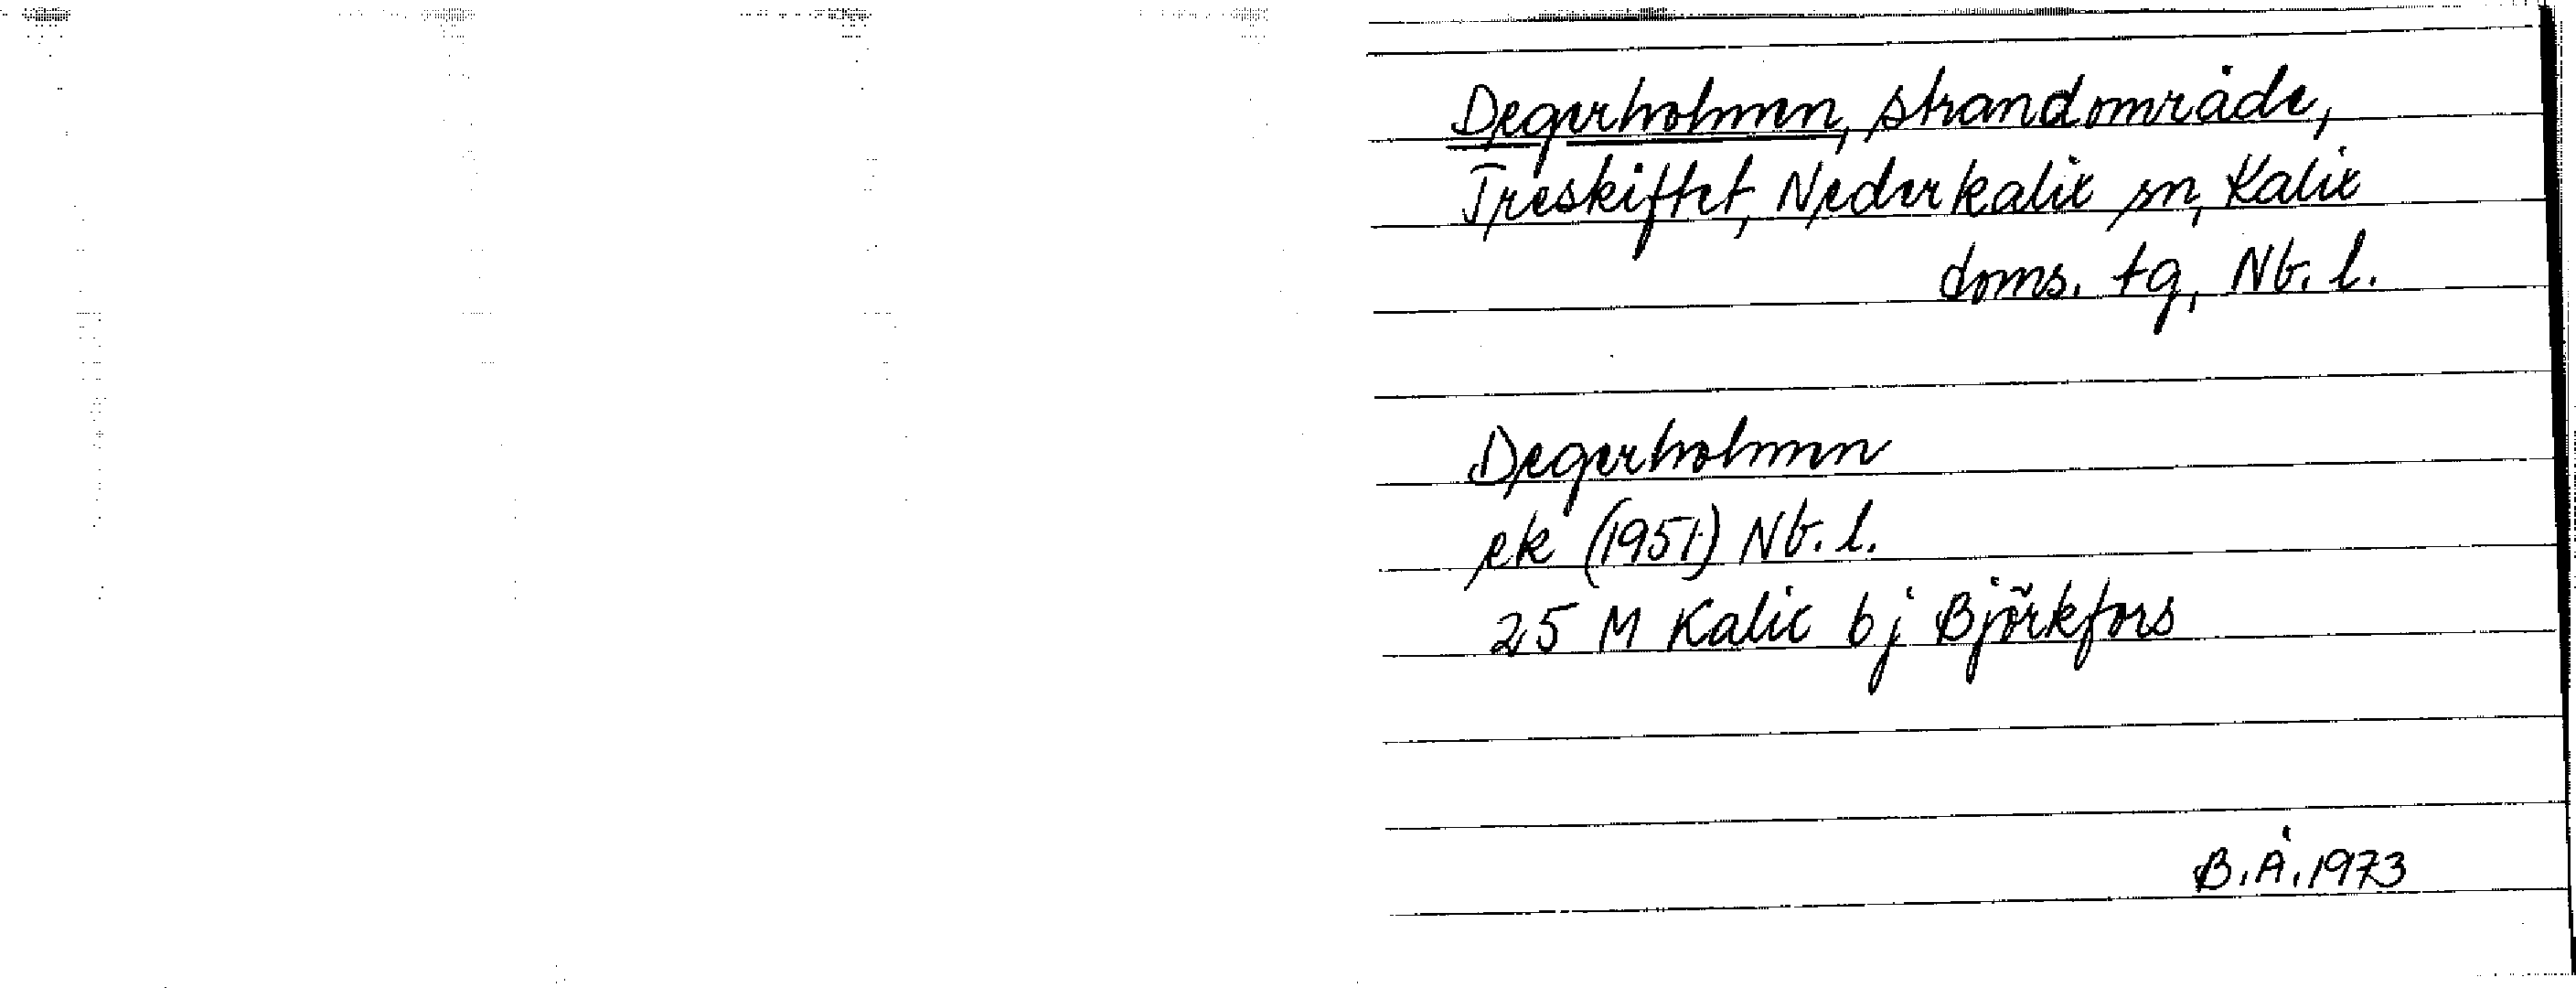 Degerholmen, strandområde,
Treskiftet, Nederkalix sn, Kalix
doms. tg, Nb. l.
Degerholmen
ek (1951) Nb. l.
25 M Kalix bj Björkfors
B.Å. 1973